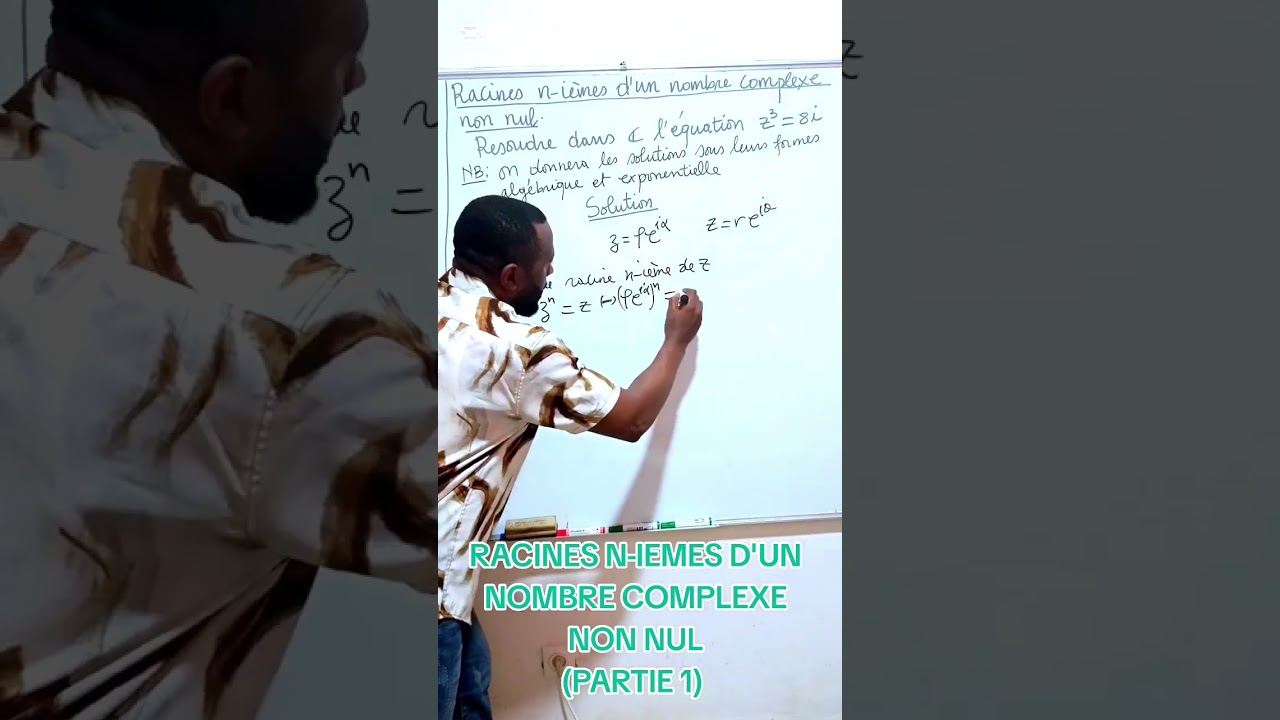 Racines n-ièmes d'un nombre complexe
non nul.
Resoudre dans ℂ l'équation z³ = 8i
NB: on donnera les solutions sous leurs formes
algébrique et exponentielle
Solution
ʒ = ρe^iα z = re^iθ
racine n-ième de z
ʒⁿ = z ↔ (ρe^iα)ⁿ =
RACINES N-IEMES D'UN
NOMBRE COMPLEXE
NON NUL
(PARTIE 1)